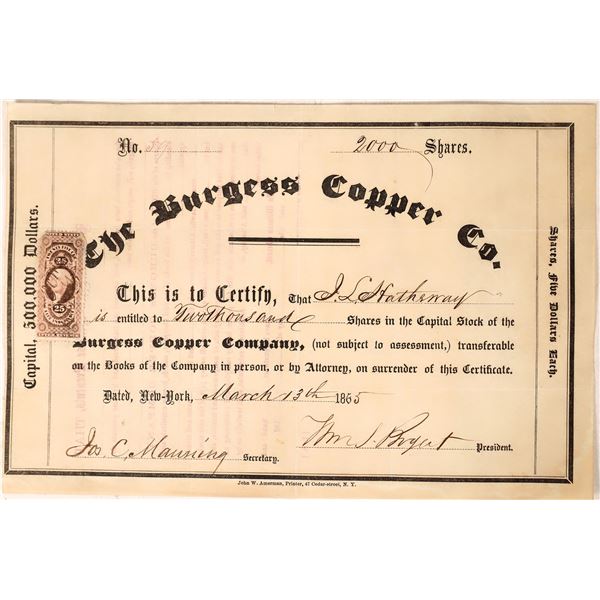 No. 2000 Shares.
The Burgess Copper Co.
Capital, 500,000 Dollars.
Shares, Five Dollars Each.
25 25
This is to Certify, That J. L. Hatheway
is entitled to Two Thousand Shares in the Capital Stock of the
Burgess Copper Company, (not subject to assessment,) transferable
on the Books of the Company in person, or by Attorney, on surrender of this Certificate.
Dated, New-York, March 13th 1865
Jos. C. Manning Secretary. Wm J. President.
John W. Amerman, Printer, 47 Cedar-street, N. Y.